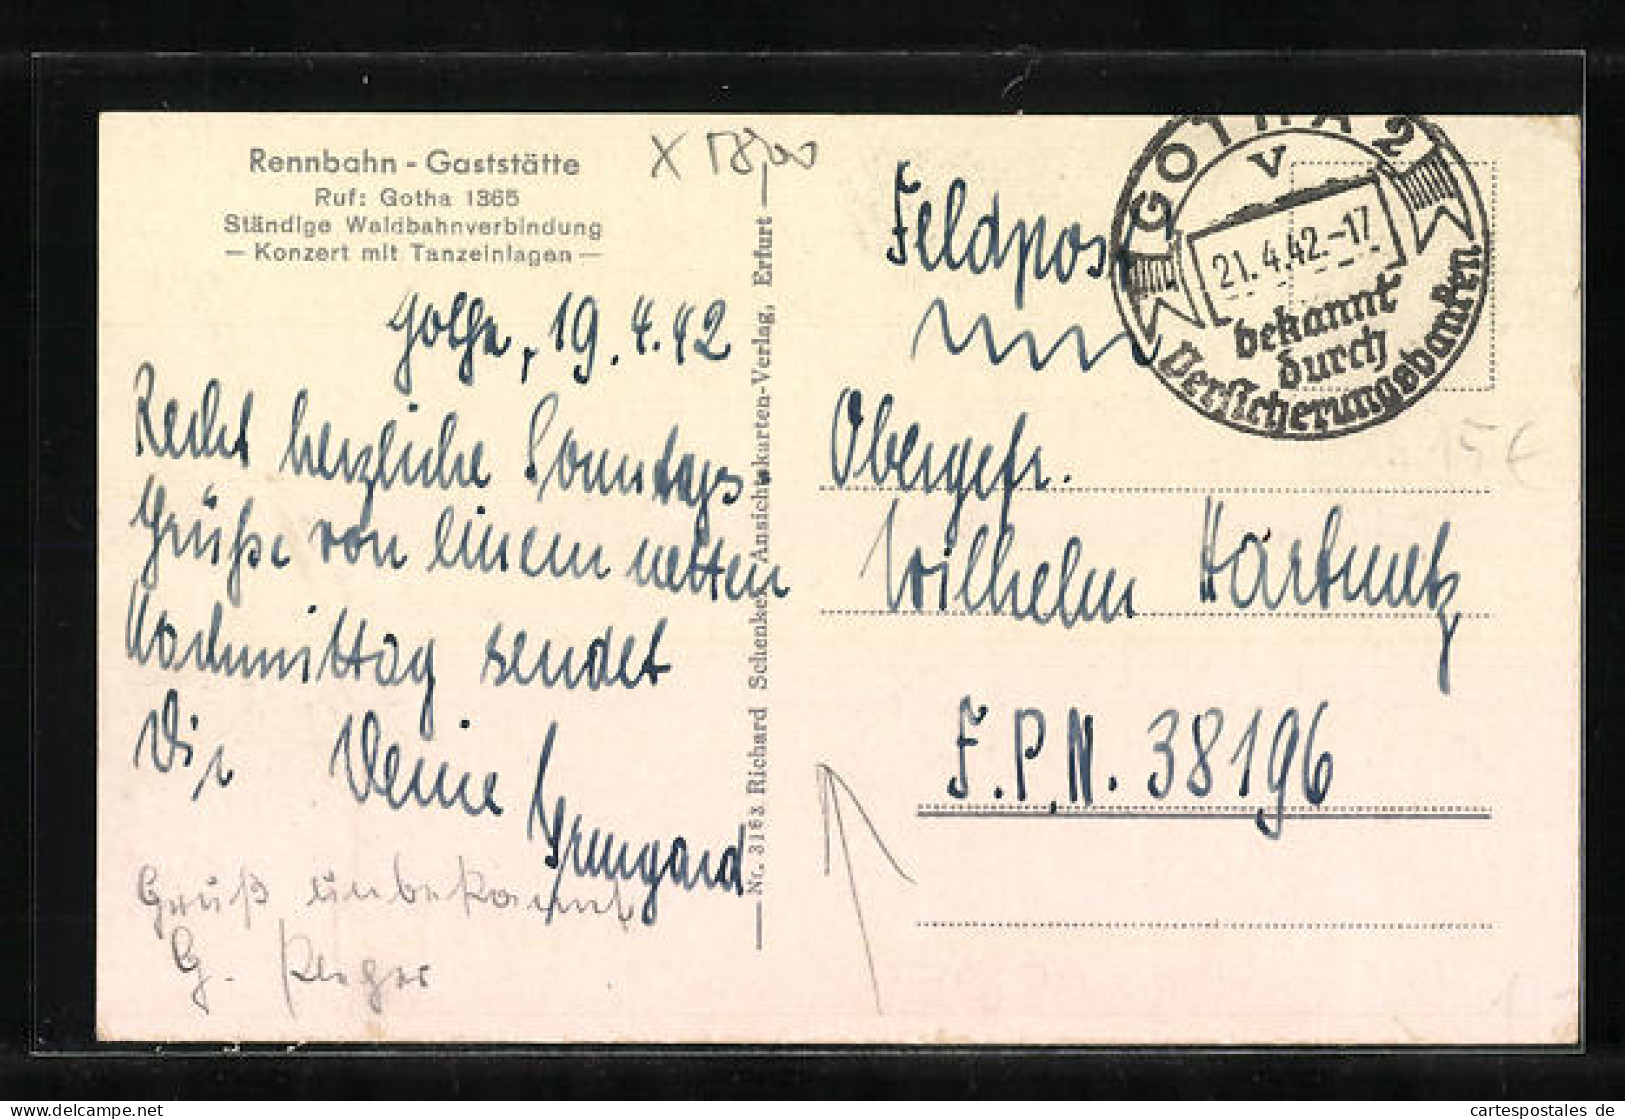 Rennbahn - Gaststätte
Ruf: Gotha 1365
Ständige Waldbahnverbindung
— Konzert mit Tanzeinlagen —
X 18,00
Gotha, 19.4.42
Recht herzliche Sonntags
Grüße von einem netten
Nachmittag sendet
Dir Deine
Irmgard
Gruß unbekannt
G.
Nr. 3163 Richard Schenker, Ansichtskarten-Verlag, Erfurt
Feldpost
GOTHA 2
V
21.4.42.-17
bekannt
durch
Versicherungsbanken
15 €
Obergefr.
Wilhelm Hartmetz
F.P.N. 38196
cartespostales de